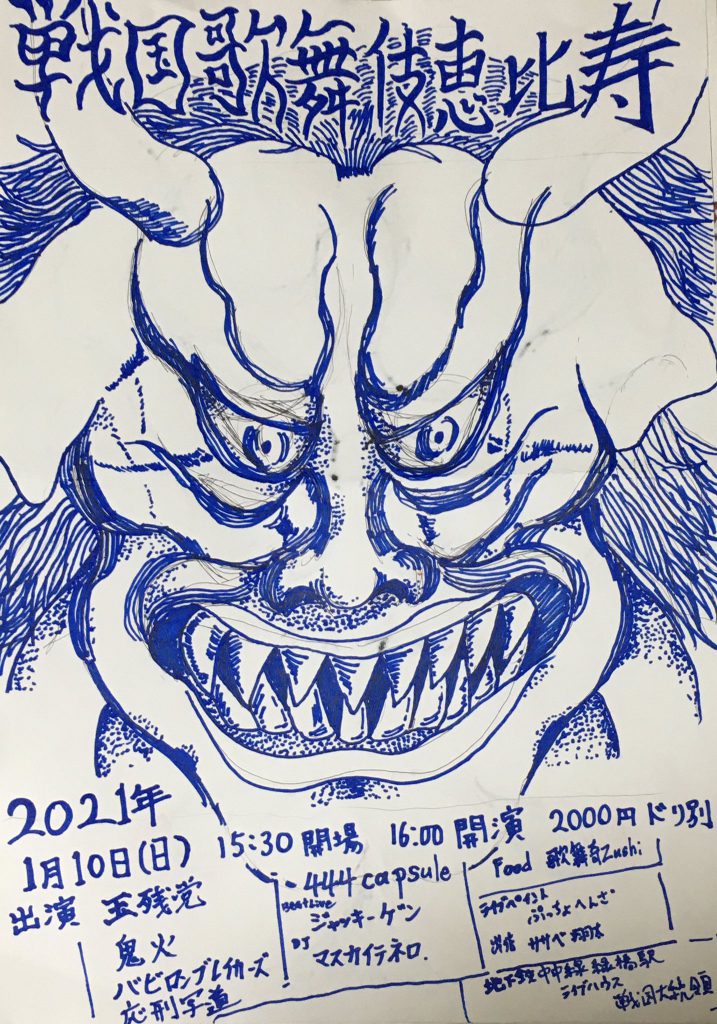 戦国歌舞伎恵比寿
2021年
1月10日(日)
15:30 開場
16:00 開演
2000円 ドリ別
出演 玉残党
鬼火
バビロンブレイカーズ
応刑写道
444capsule
Beat Live
ジャッキーゲン
DJ
マスカイテネロ.
Food 歌舞伎Zushi
ライブペイント
ぷっちょへんざ
出店 ササベ
地下鉄 中央線 緑橋駅
ライブハウス
戦国大統領